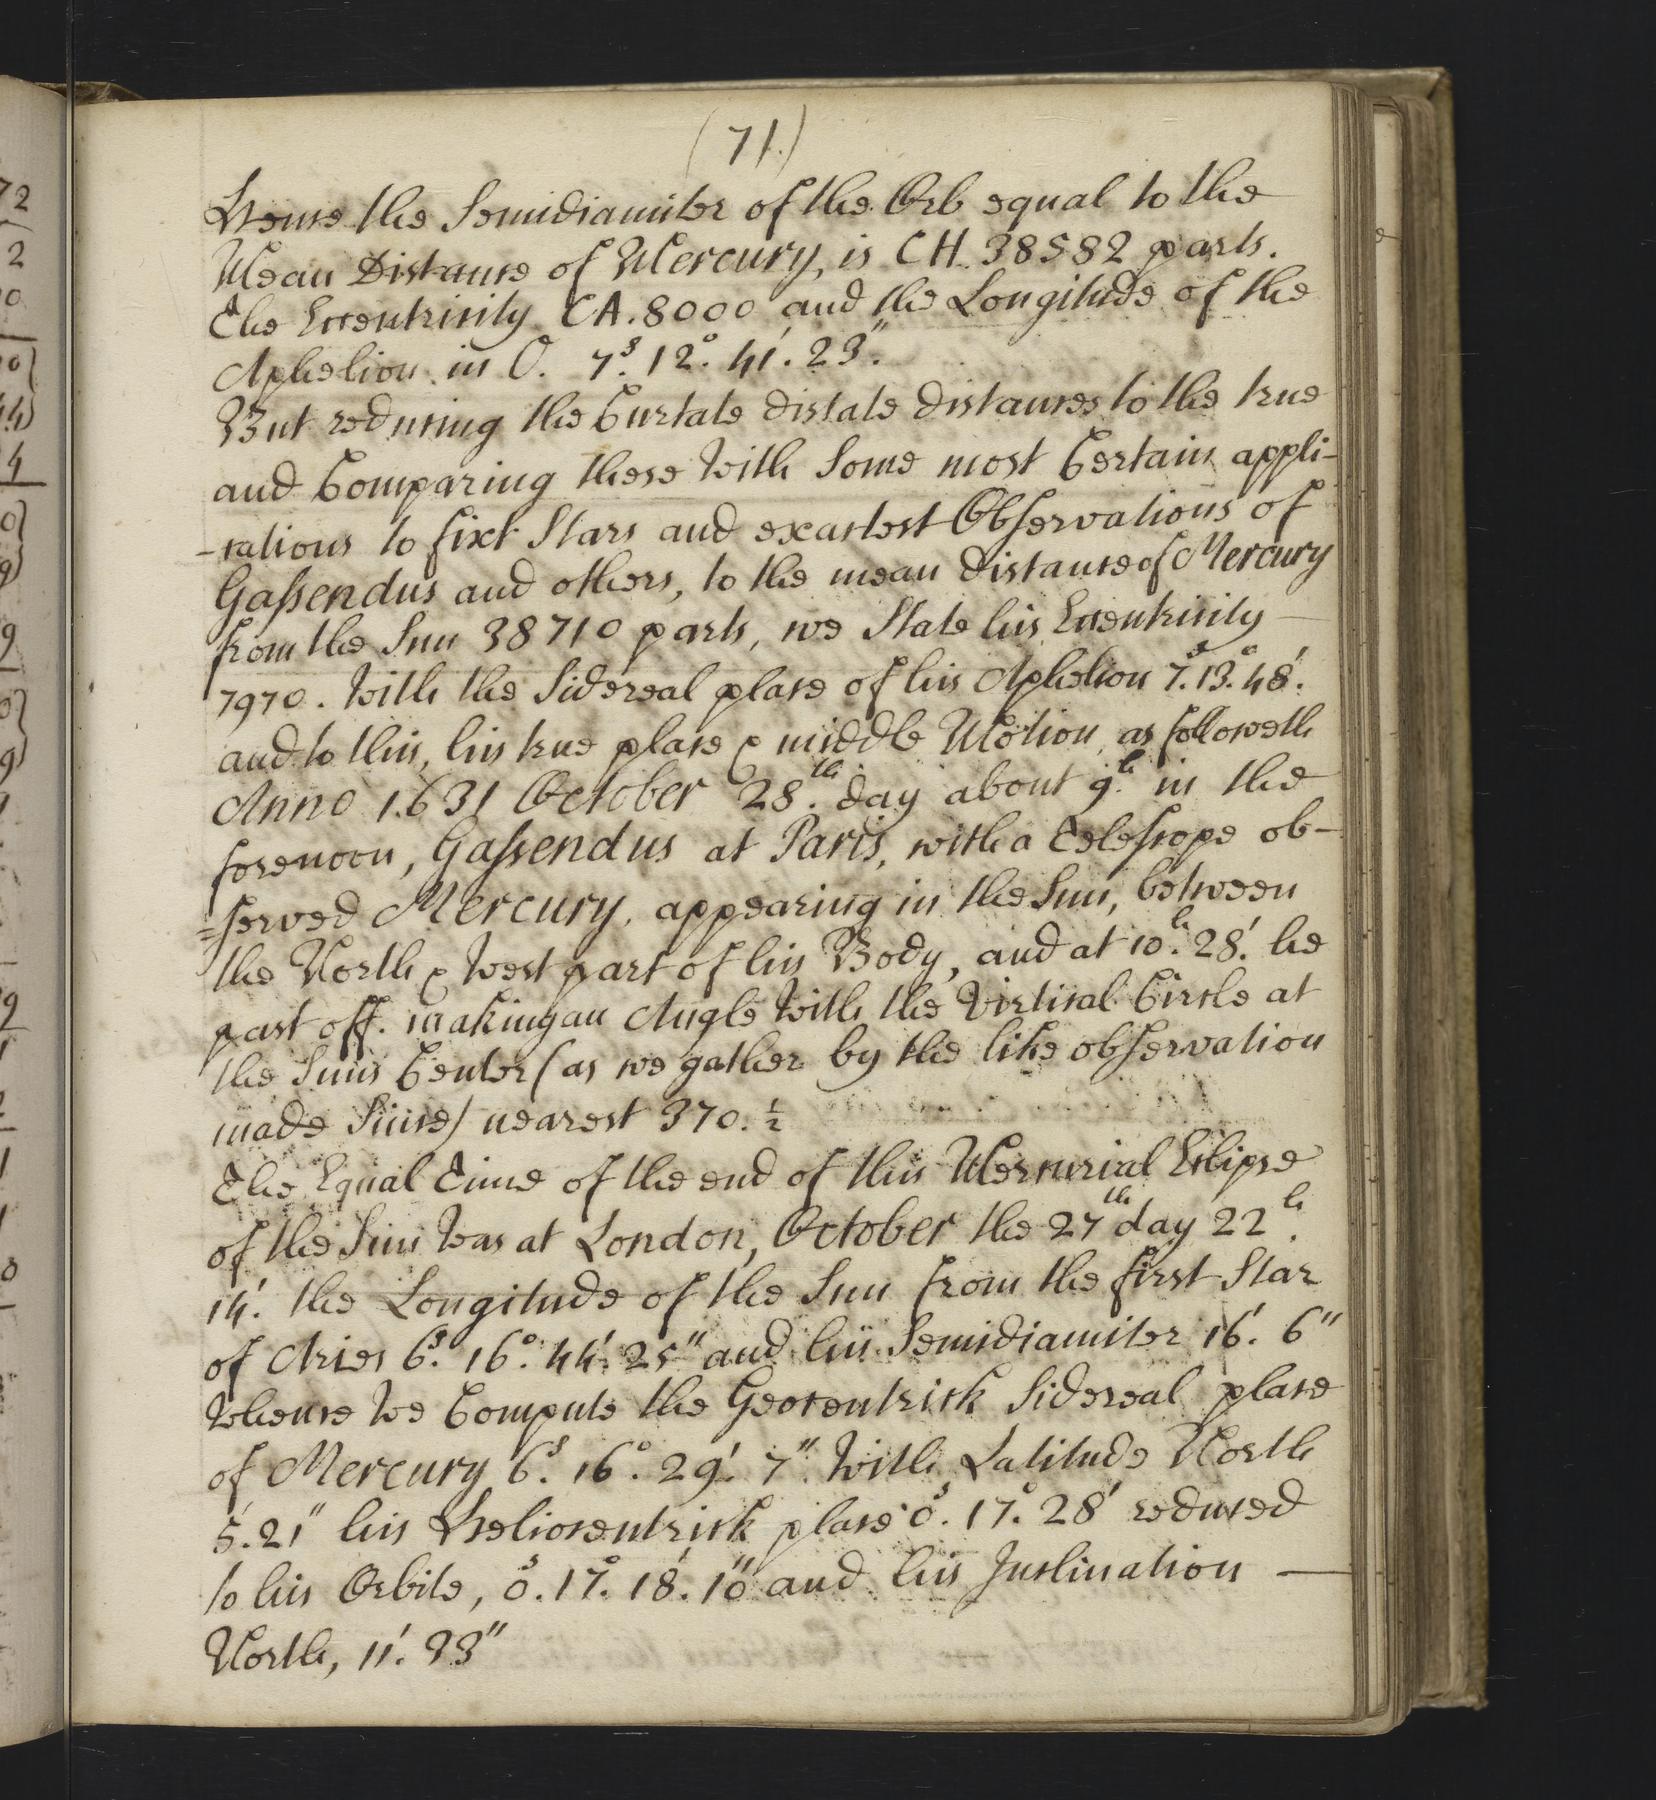 (71)
Hence the Semidiamiter of the Orb equal to the
Mean Distance of Mercury, is CH 38582 parts.
The Eccentricity CA. 8000 and the Longitude of the
Aphelion in O. 7ˢ. 12°. 41'. 23".
But reducing the Curtate distate distances to the true
and Comparing these With Some most Certain appli-
-cations to fixt Stars and exactest Observations of
Gaſsendus and others, to the mean Distance of Mercury
from the Sun 38710 parts, we State his Eccentricity
7970. With the Sidereal place of his Aphelion 7ˢ. 13°. 48'.
and to this, his true place & middle Motion, as followeth
Anno 1631 October 28th. day about 9h. in the
forenoon, Gaſsendus at Paris, with a Teleſcope ob-
=ſerved Mercury, appearing in the Sun, between
the North & West part of his Body, and at 10h. 28'. he
past off. making an Angle With the Virtical Circle at
the Suns Center (as we gather by the like obſervation
made Since) nearest 370. ½
The Equal Time of the end of this Mercurial Eclipse
of the Sun Was at London, October the 27th day 22h.
14'. the Longitude of the Sun from the first Star
of Aries 6ˢ. 16°. 44'. 25" and his Semidiamiter 16'. 6"
Whence We Compute the Geocentrick Sidereal place
of Mercury 6ˢ. 16°. 29'. 7". With Latitude North
5'. 21" his Heliocentrick place 0ˢ. 17°. 28' reduced
to his Orbite, 0ˢ. 17°. 18'. 10" and his Inclination —
North, 11'. 33"
72
2
4
9